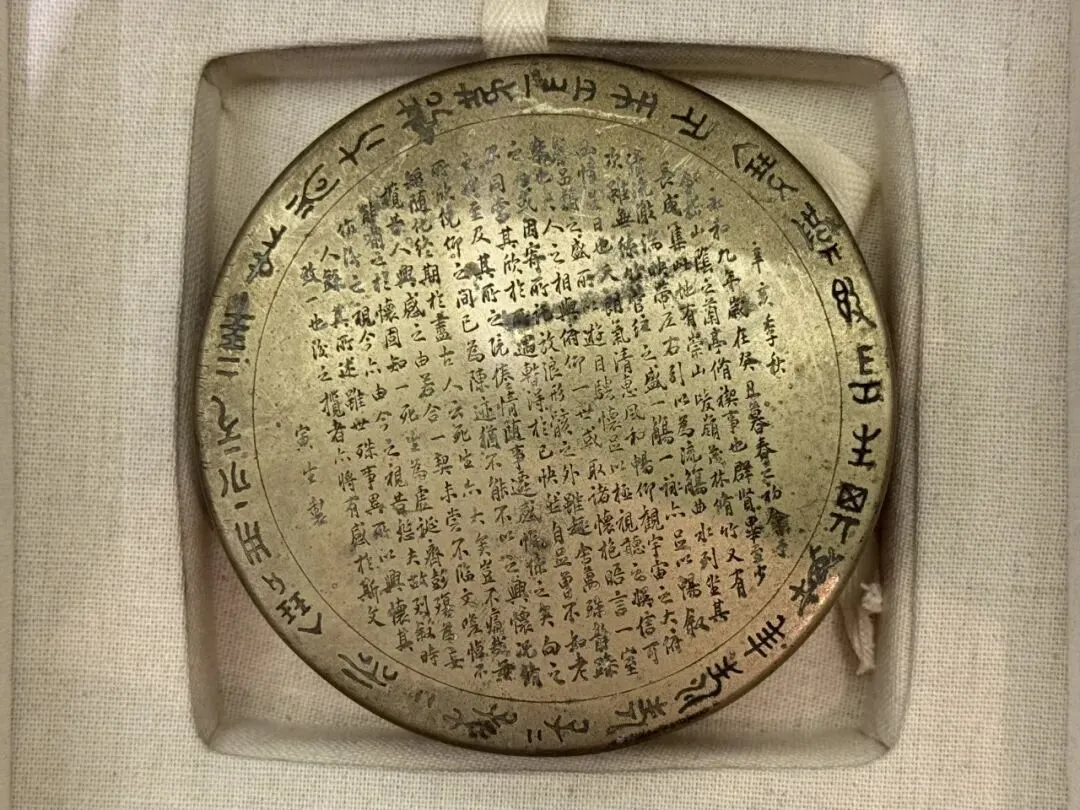 辛亥季秋
永和九年歲在癸丑暮春之初會于
會稽山陰之蘭亭脩稧事也群賢畢至少
長咸集此地有崇山峻嶺茂林脩竹又有
清流激湍映帶左右引以為流觴曲水列坐其
次雖無絲竹管絃之盛一觴一詠亦足以暢敘
幽情是日也天朗氣清惠風和暢仰觀宇宙之大俯
察品類之盛所以遊目騁懷足以極視聽之娛信可
樂也夫人之相與俯仰一世或取諸懷抱晤言一室
之內或因寄所託放浪形骸之外雖趣舍萬殊靜躁
不同當其欣於所遇暫得於己快然自足曾不知老
之將至及其所之既惓情隨事遷感慨係之矣向之
所欣俛仰之間已為陳迹猶不能不以之興懷況脩
短隨化終期於盡古人云死生亦大矣豈不痛哉每
攬昔人興感之由若合一契未嘗不臨文嗟悼不
能喻之於懷固知一死生為虛誕齊彭殤為妄
作後之視今亦由今之視昔悲夫故列敘時
人錄其所述雖世殊事異所以興懷其
致一也後之攬者亦將有感於斯文
寅生製